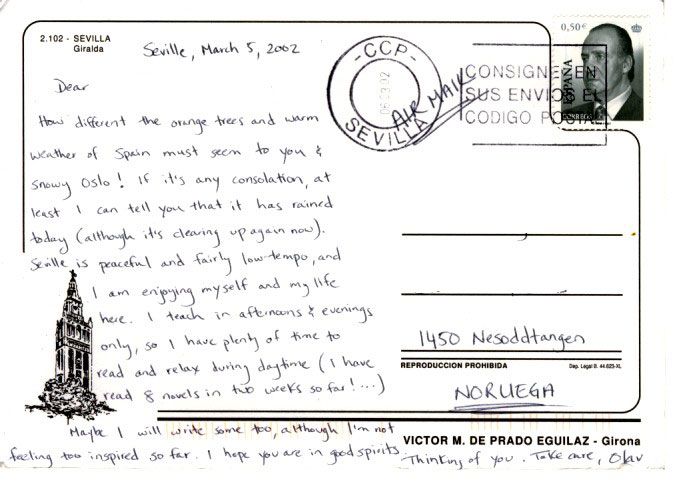 2.102 - SEVILLA
Giralda
Seville, March 5, 2002
Dear
How different the orange trees and warm
weather of Spain must seem to you &
snowy Oslo! If it's any consolation, at
least I can tell you that it has rained
today (although it's clearing up again now).
Seville is peaceful and fairly low-tempo, and
I am enjoying myself and my life
here. I teach in afternoons & evenings
only, so I have plenty of time to
read and relax during daytime (I have
read 8 novels in two weeks so far!...)
Maybe I will write some too, although I'm not
feeling too inspired so far. I hope you are in good spirits.
Thinking of you. Take care, Olav
-CCP-
SEVILLA
AIR MAIL
CONSIGNE EN
SUS ENVIOS EL
CODIGO POSTAL
0,50€
ESPAÑA
CORREOS
1450 Nesoddtangen
REPRODUCCION PROHIBIDA
Dep. Legal B. 44.623-XL
NORUEGA
VICTOR M. DE PRADO EGUILAZ - Girona